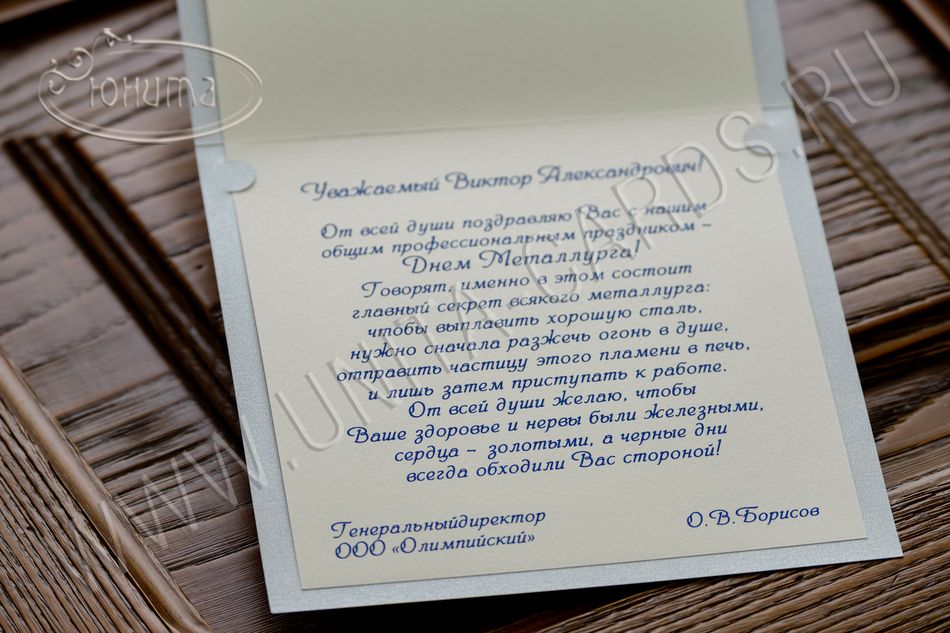 Юнита
WWW.UNITA-CARDS.RU
Уважаемый Виктор Александрович!
От всей души поздравляю Вас с нашим
общим профессиональным праздником –
Днем Металлурга!
Говорят, именно в этом состоит
главный секрет всякого металлурга:
чтобы выплавить хорошую сталь,
нужно сначала разжечь огонь в душе,
отправить частицу этого пламени в печь,
и лишь затем приступать к работе.
От всей души желаю, чтобы
Ваше здоровье и нервы были железными,
сердца – золотыми, а черные дни
всегда обходили Вас стороной!
Генеральныйдиректор
ООО «Олимпийский»
О.В.Борисов